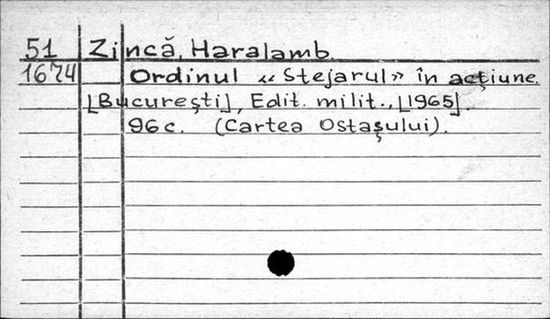 51 Zincă, Haralamb.
1674 Ordinul «Stejarul» în acțiune.
[București], Edit. milit., [1965].
96 c. (Cartea Ostașului).